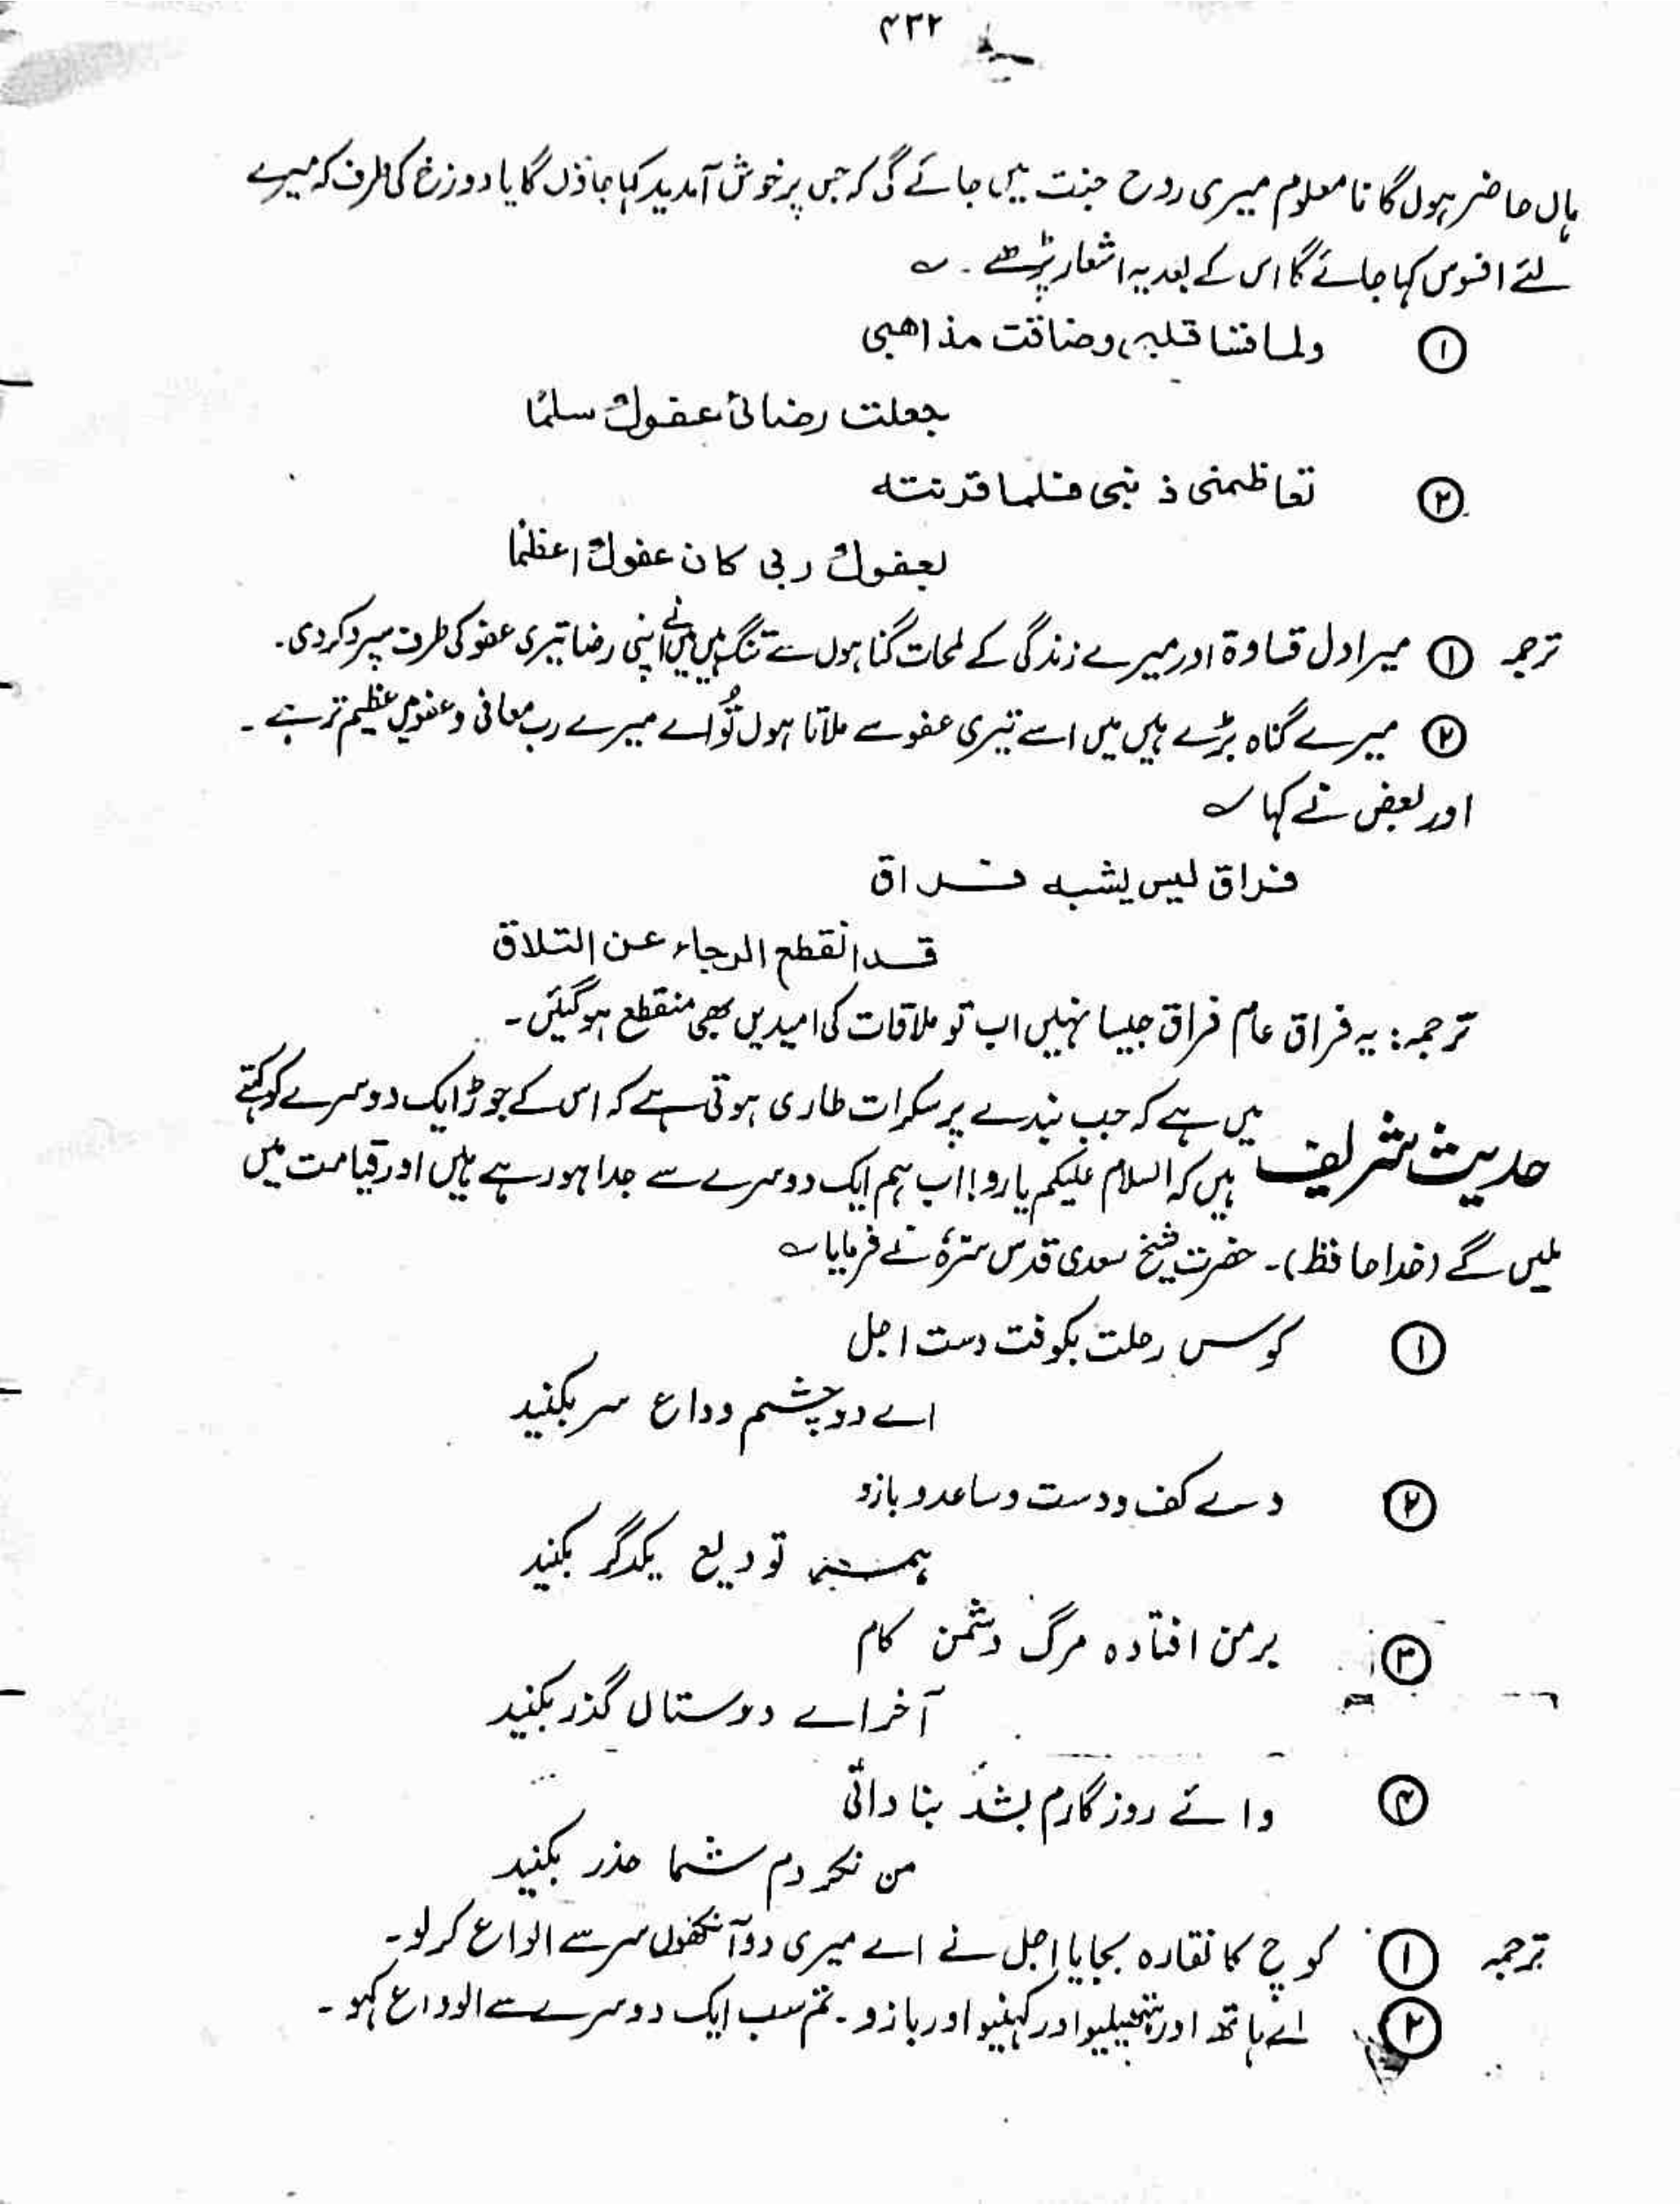 ۴۳۲
ہاں حاضر ہوں گا نا معلوم میری روح جنت میں جائے گی کہ جس پر خوش آمدید کہا جاؤں گا یا دوزخ کی طرف کہ میرے
لئے افسوس کہا جائے گا اس کے بعد یہ اشعار پڑھے ۔ ؎
① ولما قسا قلبی وضاقت مذاهبی
جعلت رضائی عفوك سلمًا
② تعاظمنی ذنبی فلما قرنته
بعفوك ربی كان عفوك اعظمًا
ترجمہ ① میرا دل قساوۃ اور میرے زندگی کے لمحات گناہوں سے تنگ ہیں میں نے اپنی رضا تیری عفو کی طرف سپرد کردی۔
② میرے گناہ بڑے ہیں میں اسے تیری عفو سے ملاتا ہوں تُو اے میرے رب معافی و عفو میں عظیم تر ہے ۔
اور بعض نے کہا ؎
فراق لیس یشبه فراق
قد انقطع الرجاء عن التلاق
ترجمہ: یہ فراق عام فراق جیسا نہیں اب تو ملاقات کی امیدیں بھی منقطع ہوگئیں ۔
حدیث شریف میں ہے کہ جب بندے پر سکرات طاری ہوتی ہے کہ اس کے جوڑ ایک دوسرے کو کہتے
ہیں کہ السلام علیکم یارو! اب ہم ایک دوسرے سے جدا ہو رہے ہیں اور قیامت میں
ملیں گے (خدا حافظ)۔ حضرت شیخ سعدی قدس سترہٗ نے فرمایا ؎
① کوس رحلت بکوفت دست اجل
اے دو چشم وداع سر بکنید
② دے کف و دست و ساعد و بازو
ہمہ تودیع یکدگر بکنید
③ بر من افتادہ مرگ دشمن کام
آخر اے دوستاں گذر بکنید
④ وائے روزگارم بشد بنا دانی
من نکردم شما حذر بکنید
ترجمہ ① کوچ کا نقارہ بجایا اجل نے اے میری دو آنکھوں سر سے الواع کرلو۔
② اے ہاتھ اور ہتھیلیو اور کہنیو اور بازو ۔ تم سب ایک دوسرے سے الوداع کہو ۔